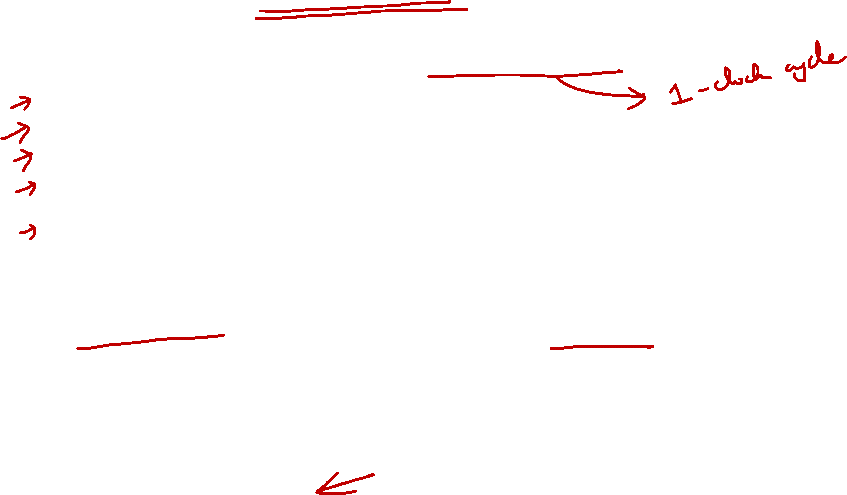 1-clock cycle